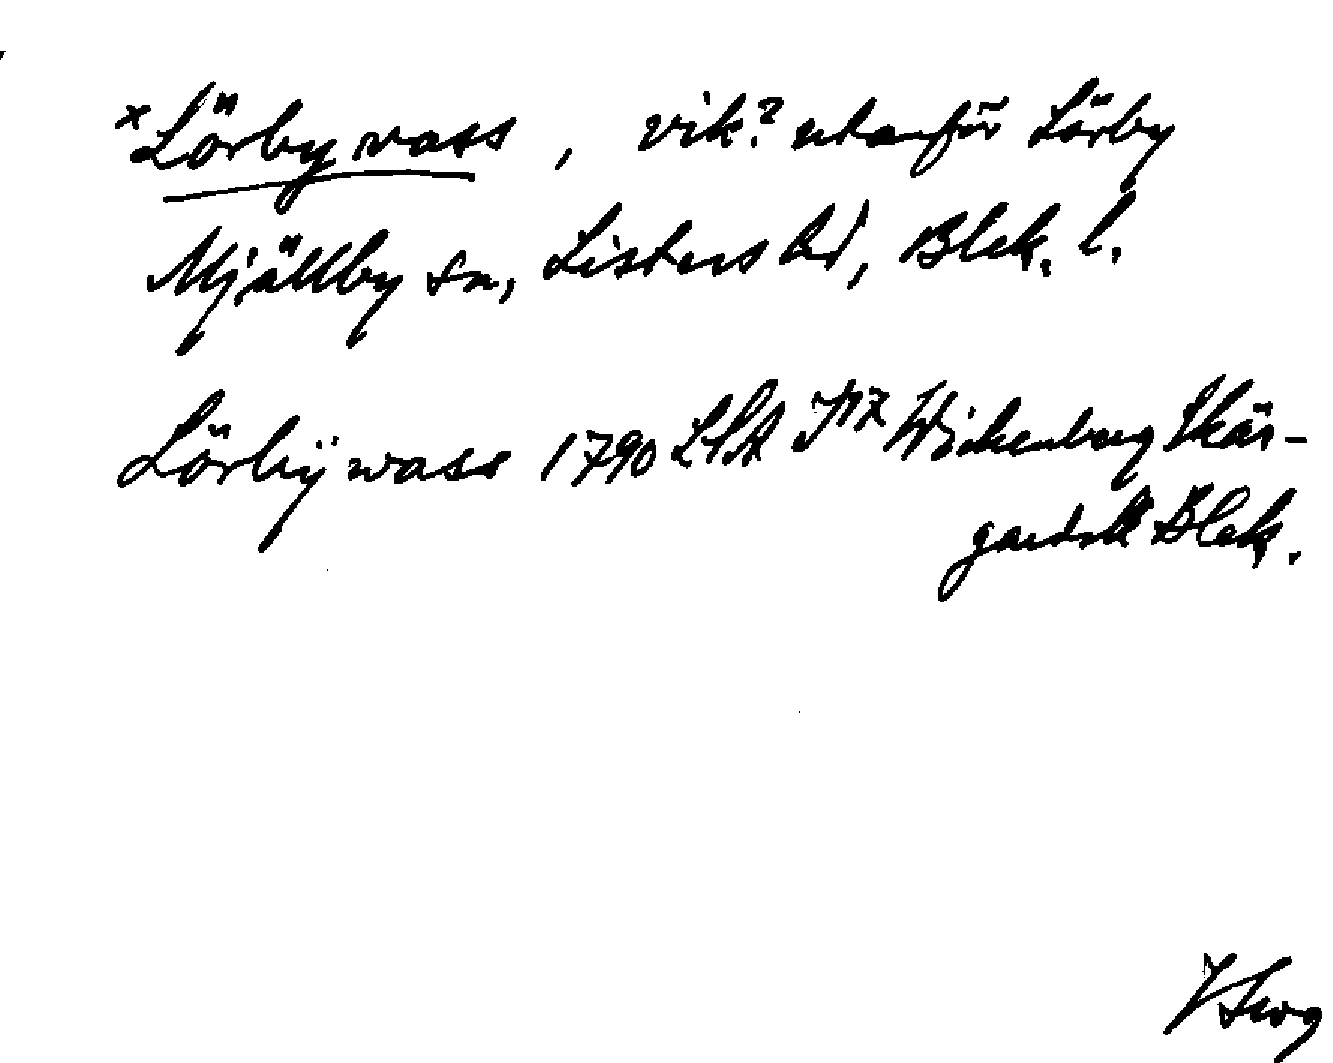 ×Lörby vass, vik? utanför Lörby
Mjällby sn, Listers hd, Blek. l.
Lörbÿ wass 1790 LSA J17 Wickenberg Skär-
gårdsk Blek.